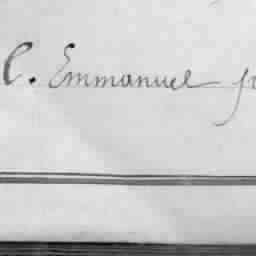 C. Emmanuel